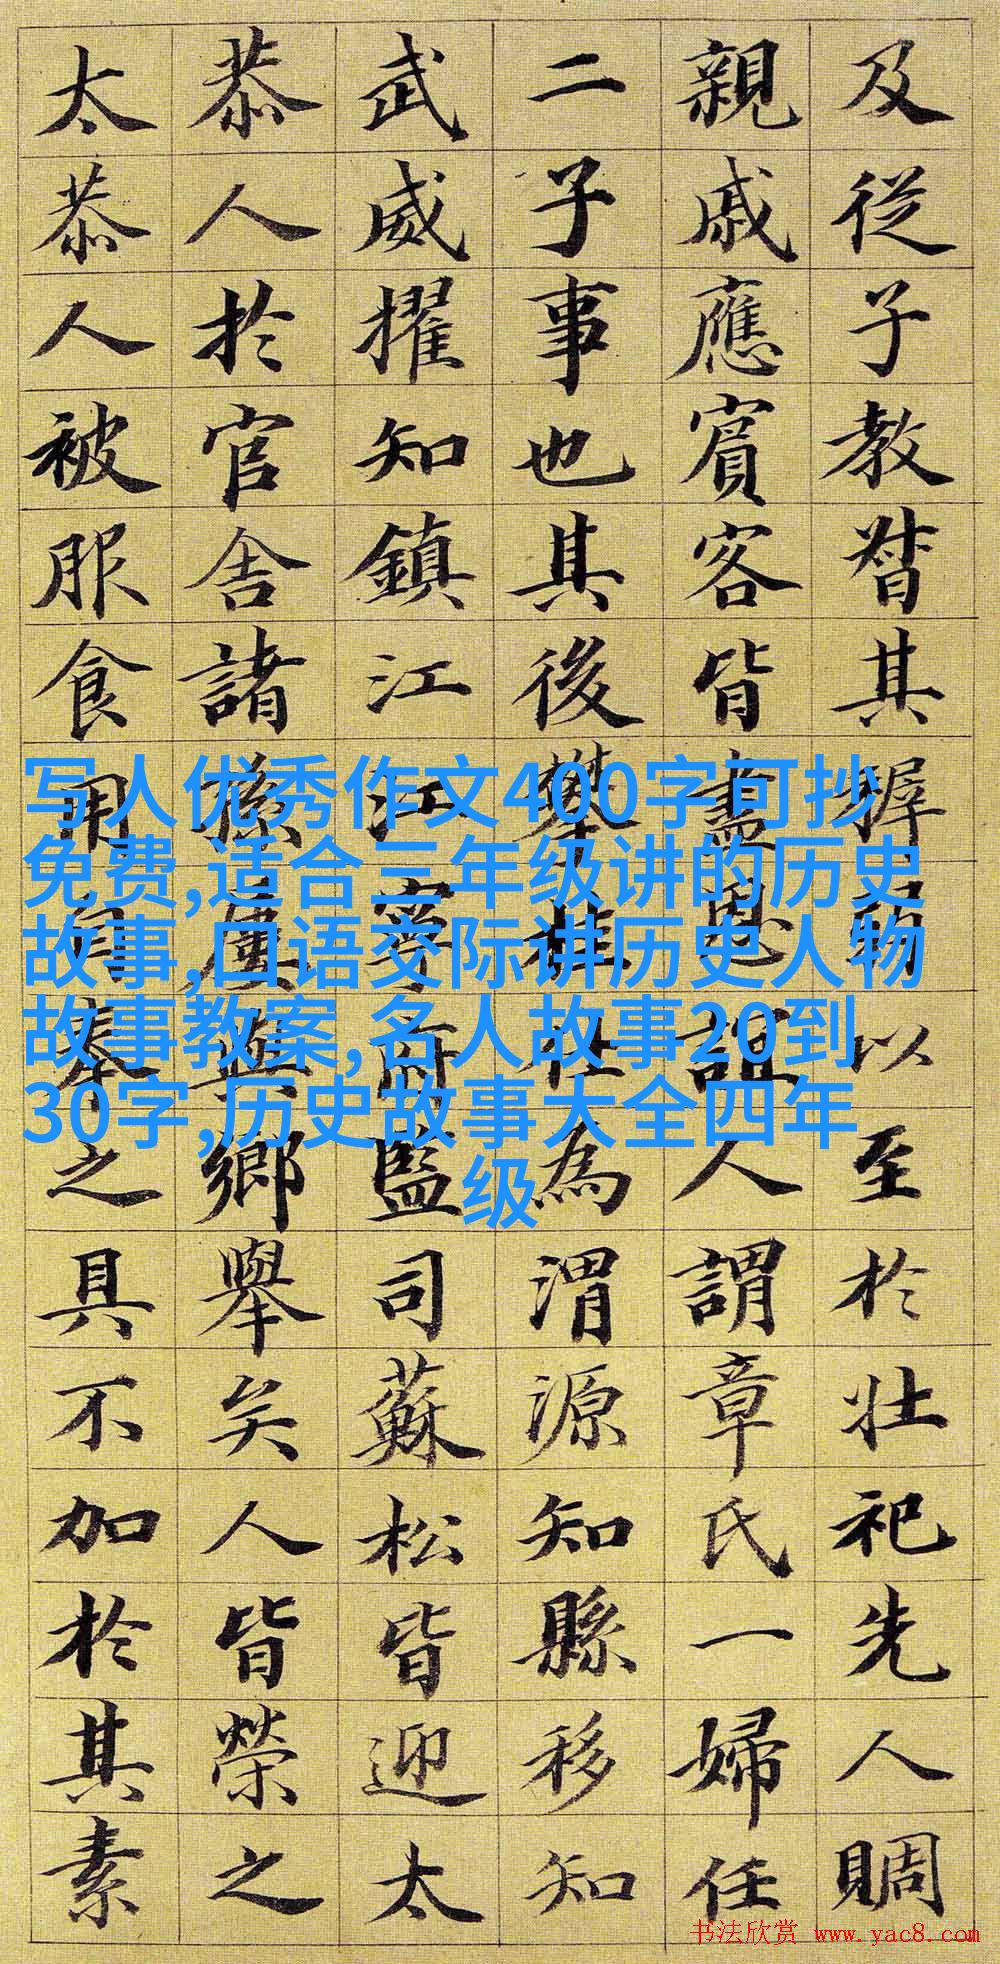 及從子教督其穉弱以至於壯祀先人賙
親戚應賓客皆盡恩誼人謂章氏一婦任
二子事也其後攀桂仕為渭源知縣移知
武威擢知鎮江江寧府監司蘇松皆迎太
恭人於官舍諸孫屬與鄉舉矣人皆榮之
太恭人被服食用自奉之具不加於其素
写人优秀作文400字可抄
免费,适合三年级讲的历史
故事,口语交际讲历史人物
故事教案,名人故事20到
30字,历史故事大全四年
级
书法欣赏 www.yac8.com